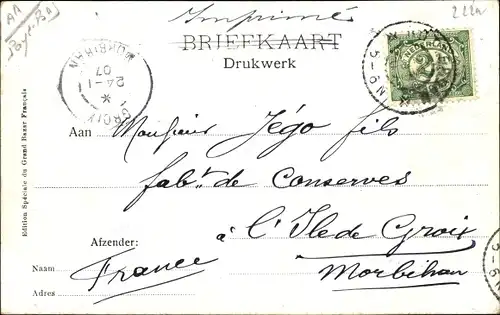 Imprimé
222a
AA
Pays-Bas
BRIEFKAART
Drukwerk
NEDERLAND
5-6 N
MORBIHAN
24-1
07
GROIX
Aan Monsieur Jégo fils
fabt de Conserves
à l'Ile de Groix
Morbihan
France
Afzender:
Naam
Adres
Edition Spéciale du Grand Bazar Français
5-6 N